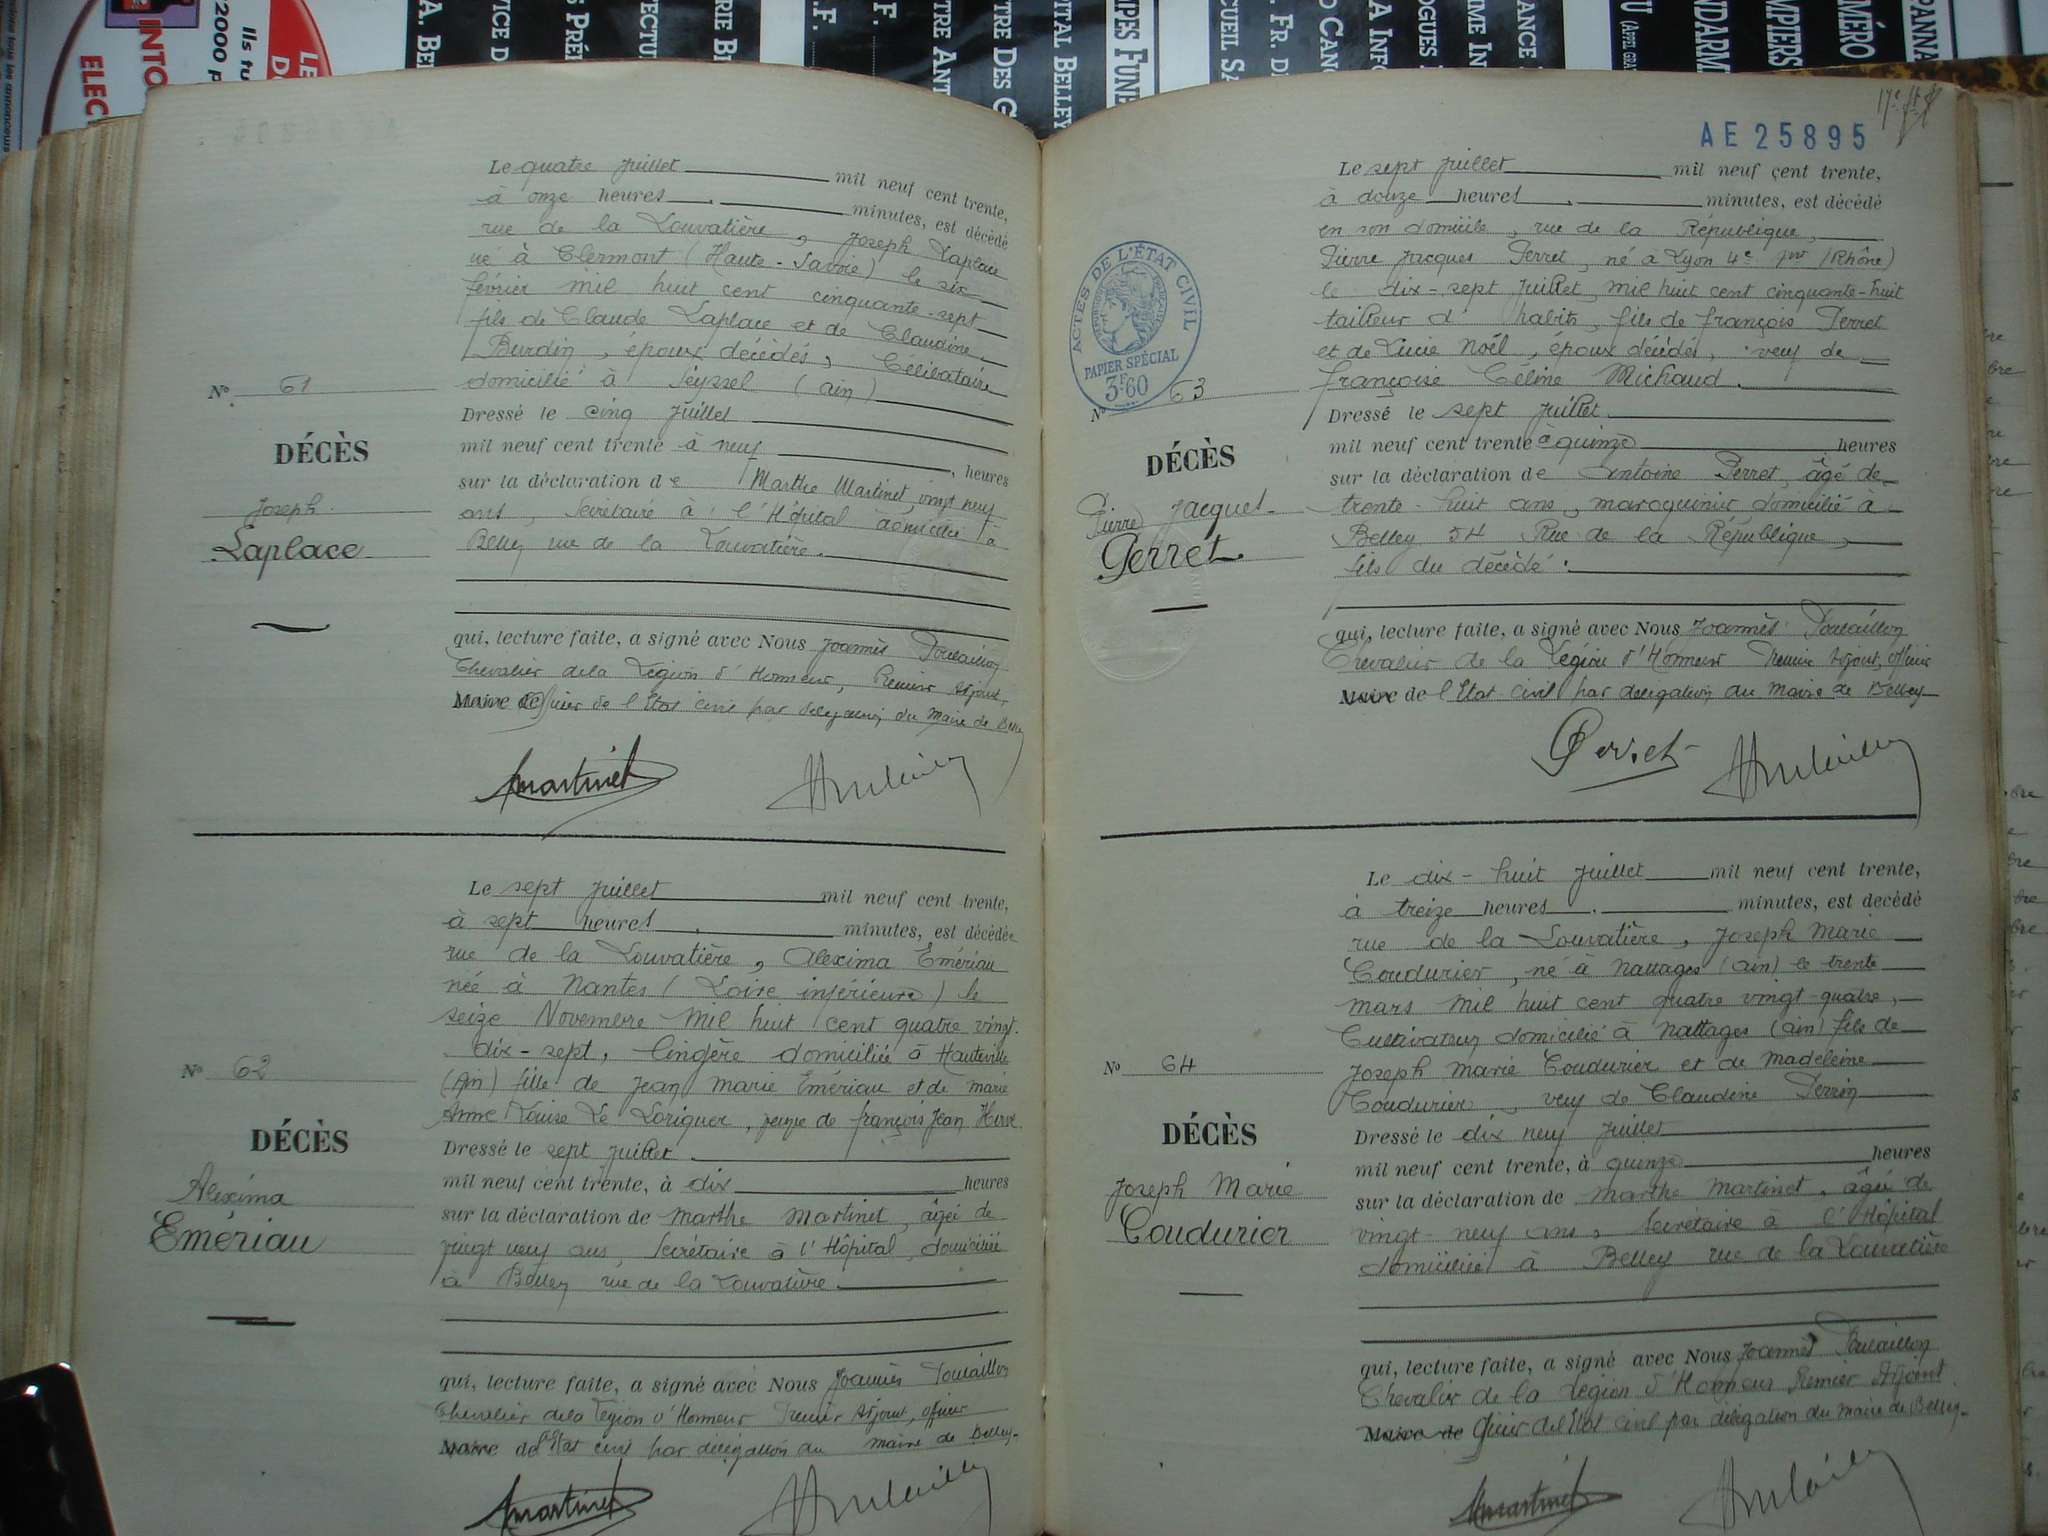 LE
INTO
ELEC
Ils tu
2000 p
A. BE
VICE D
S PRÉ
ECTU
RIE B
.F.
F.
TRE ANT
TRE DES G
PITAL BELLEY
MPES FUNE
CUEIL SA
. FR. D
O CANC
A INFO
OGUES
MME IN
ANCE
U (APPEL GRA
NDARM
MPIERS
MÉRO
PANNA
Le quatre Juillet mil neuf cent trente,
à onze heures . minutes, est décédé
rue de la Louvatière, Joseph Laplace
né à Clermont (Haute-Savoie) le six
février mil huit cent cinquante-sept
fils de Claude Laplace et de Claudine
Burdin, époux décédés, Célibataire
domicilié à Seyssel (ain)
No 61
DÉCÈS
Joseph
Laplace
Dressé le cinq Juillet
mil neuf cent trente à neuf , heures
sur la déclaration de Marthe Martinet, vingt neuf
ans, Secrétaire à l'Hôpital domiciliée à
Belley rue de la Louvatière.
qui, lecture faite, a signé avec Nous Joannès Poulaillon
Chevalier de la Légion d'Honneur, Premier Adjoint,
Maire de Officier de l'Etat civil par délégation du Maire de Belley
Martinet
Le sept Juillet mil neuf cent trente,
à sept heures . minutes, est décédée
rue de la Louvatière, Alexima Emériau
née à Nantes (Loire inférieure) le
seize Novembre mil huit cent quatre vingt
dix-sept, lingère domiciliée à Hauteville
(Ain) fille de Jean Marie Emériau et de Marie
Anne Louise Le Loriquer, veuve de françois Jean
No 62
DÉCÈS
Alexima
Emériau
Dressé le sept Juillet
mil neuf cent trente, à dix heures
sur la déclaration de Marthe Martinet, âgée de
vingt neuf ans, Secrétaire à l'Hôpital, domiciliée
à Belley rue de la Louvatière.
qui, lecture faite, a signé avec Nous Joannès Poulaillon
Chevalier de la Légion d'Honneur Premier Adjoint, officier
Maire de l'Etat civil par délégation du Maire de Belley
Martinet
17e
AE 25895
ACTES DE L'ÉTAT CIVIL
PAPIER SPÉCIAL
3F60
Le sept Juillet mil neuf cent trente,
à douze heures . minutes, est décédé
en son domicile, rue de la République,
Pierre Jacques Perret, né à Lyon 4e (Rhône)
le dix-sept Juillet, mil huit cent cinquante-huit
tailleur d'habits, fils de françois Perret
et de Lucie Noël, époux décédés, veuf de
françoise Céline Michaud.
No 63
DÉCÈS
Pierre Jacques
Perret
Dressé le sept Juillet
mil neuf cent trente à quinze heures
sur la déclaration de Antoine Perret, âgé de
trente-huit ans, maroquinier domicilié à
Belley 54 Rue de la République,
fils du décédé.
qui, lecture faite, a signé avec Nous Joannès Poulaillon
Chevalier de la Légion d'Honneur Premier Adjoint, officier
Maire de l'Etat civil par délégation du Maire de Belley
Perret
Le dix-huit Juillet mil neuf cent trente,
à treize heures . minutes, est décédé
rue de la Louvatière, Joseph Marie
Coudurier, né à Nattages (ain) le trente
mars mil huit cent quatre vingt-quatre,
Cultivateur domicilié à Nattages (ain) fils de
Joseph Marie Coudurier et de Madeleine
Coudurier, veuf de Claudine Perrin
No 64
DÉCÈS
Joseph Marie
Coudurier
Dressé le dix neuf Juillet
mil neuf cent trente, à quinze heures
sur la déclaration de Marthe Martinet, âgée de
vingt-neuf ans, Secrétaire à l'Hôpital
domiciliée à Belley rue de la Louvatière
qui, lecture faite, a signé avec Nous Joannès Poulaillon
Chevalier de la Légion d'Honneur Premier Adjoint
Maire de Officier de l'Etat civil par délégation du Maire de Belley
Martinet